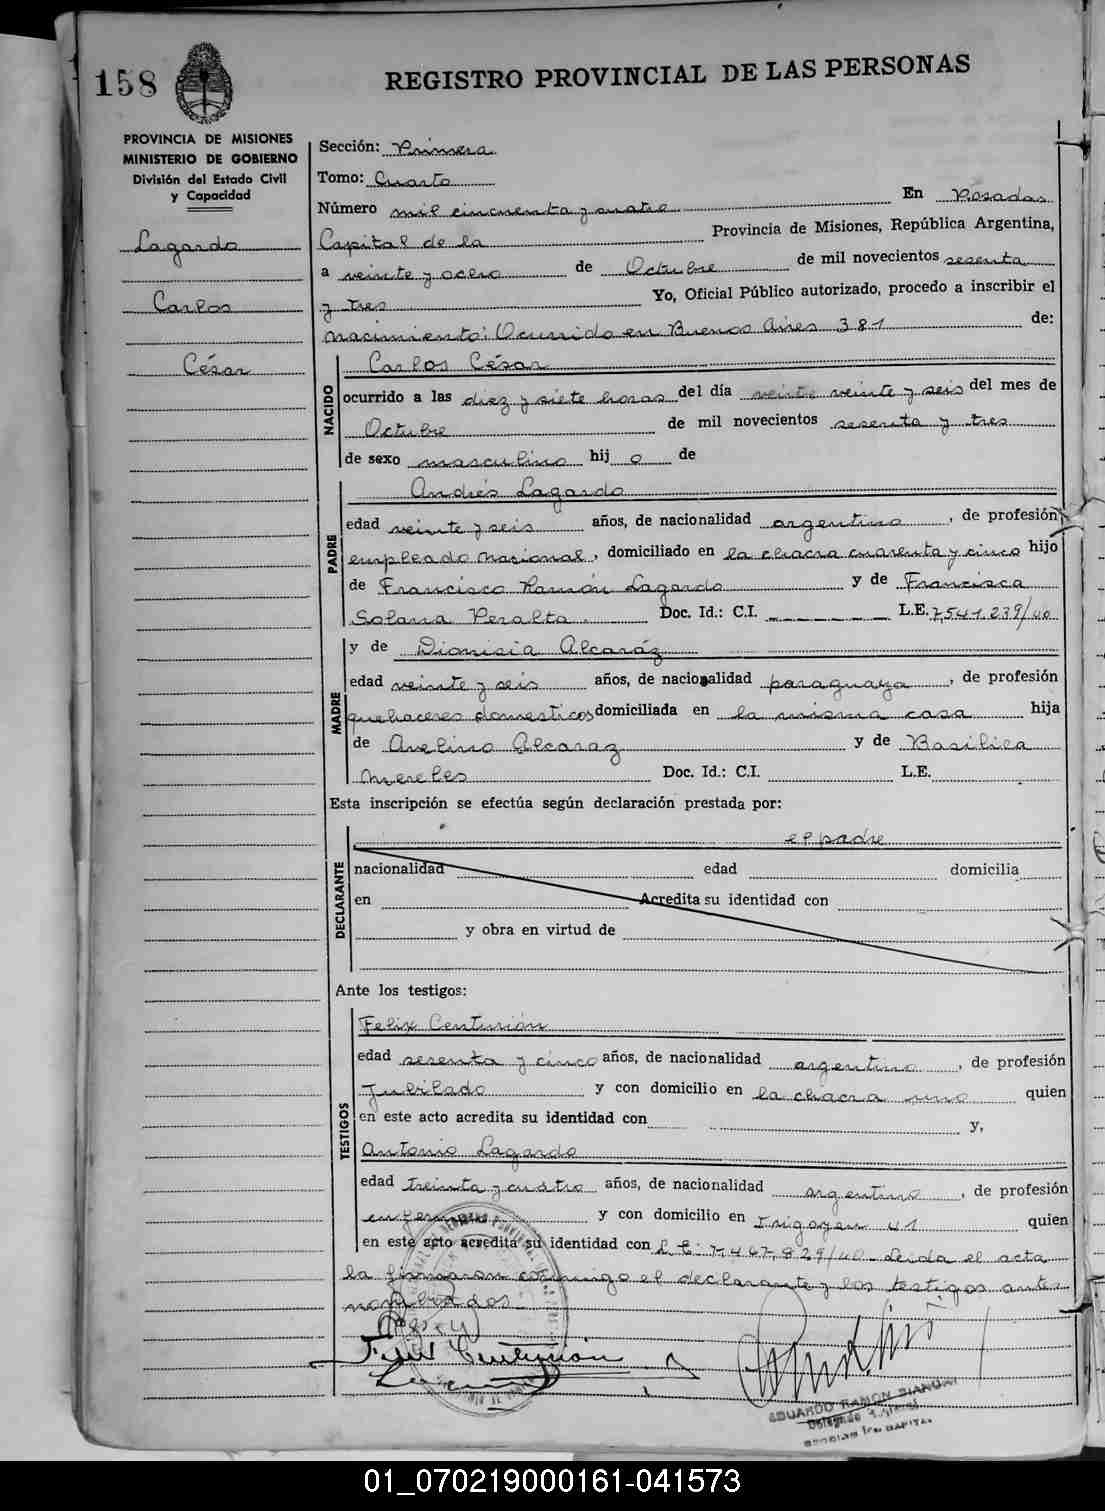 158
REGISTRO PROVINCIAL DE LAS PERSONAS
PROVINCIA DE MISIONES
MINISTERIO DE GOBIERNO
División del Estado Civil
y Capacidad
Lagardo
Carlos
César
Sección: Primera
Tomo: Cuarto
Número mil cincuenta y cuatro En Posadas
Capital de la Provincia de Misiones, República Argentina,
a veinte y ocho de Octubre de mil novecientos sesenta
y tres Yo, Oficial Público autorizado, procedo a inscribir el
nacimiento: Ocurrido en Buenos Aires 381 de:
NACIDO
Carlos César
ocurrido a las diez y siete horas del día veinte veinte y seis del mes de
Octubre de mil novecientos sesenta y tres
de sexo masculino hij o de
PADRE
Andrés Lagardo
edad veinte y seis años, de nacionalidad argentino, de profesión
empleado nacional, domiciliado en la chacra cuarenta y cinco hijo
de Francisco Ramón Lagardo y de Francisca
Solana Peralta. Doc. Id.: C.I. L.E. 7,541.239/40
MADRE
y de Dionisia Alcaráz
edad veinte y seis años, de nacionalidad paraguaya, de profesión
quehaceres domesticos domiciliada en la misma casa hija
de Avelino Alcaraz y de Basilica
Mereles Doc. Id.: C.I. L.E.
Esta inscripción se efectúa según declaración prestada por:
DECLARANTE
el padre
nacionalidad edad domicilia
en Acredita su identidad con
y obra en virtud de
Ante los testigos:
TESTIGOS
Felix Centurión
edad sesenta y cinco años, de nacionalidad argentino, de profesión
Jubilado y con domicilio en la chacra uno quien
en este acto acredita su identidad con y,
Antonio Lagardo
edad treinta y cuatro años, de nacionalidad argentino, de profesión
y con domicilio en Irigoyen 41 quien
en este acto acredita su identidad con L.E: 7,467,829/40 Leida el acta
la firmaron conmigo el declarante y los testigos ante
nombrados.
Felix Centurión
EDUARDO RAMON
Delegado
01_070219000161-041573